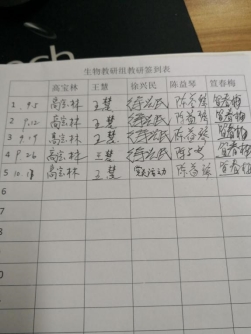 ch
生物教研组教研签到表
高宝林 王慧 徐兴民 陈益琴 贺春梅
1. 9.5 高宝林 王慧 徐兴民 陈益琴 贺春梅
2 9.12 高宝林 王慧 徐兴民 陈益琴 贺春梅
3 9.19 高宝林 王慧 徐兴民 陈益琴 贺春梅
4 9.26 高宝林 王慧 徐兴民 贺春梅
5 10. 高宝林 王慧 陈益琴 贺春梅
6
7
8
9
10
11
12
13